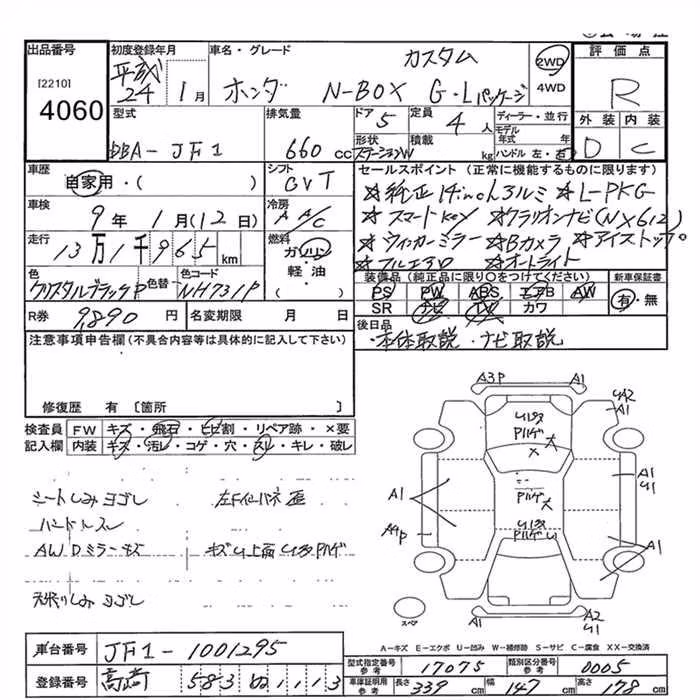 出品番号
[2210]
4060
初度登録年月
平成
24 1月
車名・グレード
カスタム
ホンダ N-BOX G・Lパッケージ
2WD
4WD
評価点
R
外装 内装
D C
型式
DBA-JF1
排気量
660 cc
ドア
5
定員
4人
形状
ステーションW
積載
kg
ディーラー・並行
モデル
年式 年
ハンドル 左・右
車歴
自家用・( )
シフト
CVT
セールスポイント (正常に機能するものに限ります)
☆純正14inchアルミ ☆L-PKG
☆スマートKey ☆クラリオンナビ(NX612)
☆ウィンカーミラー ☆Bカメラ ☆アイストップ
☆オートライト
車検
9年 1月(12日)
冷房
AA/C
走行
13万1千965km
燃料
ガソリン
軽・油
( )
色
クリスタルブラックP
色替
色コード
NH731P
装備品 (純正品に限り○をつけてください)
PS PW ABS エアB AW
SR ナビ TV カワ
新車保証書
有・無
R券 9,890円
名変期限 月 日
後日品
・本体取説・ナビ取説
注意事項申告欄(不具合内容等は具体的に記入して下さい)
修復歴 有 〔箇所 〕
検査員
記入欄
FW キズ・飛石・ヒビ割・リペア跡・×要
内装 キズ・汚レ・コゲ・穴・スレ・キレ・破レ
シートしみヨゴレ
ハンドルスレ
AWDミラーキズ
天張りしみヨゴレ
A3P A1
UA2
A1
A1
A4P
A1
U1
A1
A1 A2
U1
スペア
A-キズ E-エクボ U-凹み W-補修跡 S-サビ C-腐食 XX-交換済
車台番号 JF1-1001295
登録番号 高崎 583 ぬ 1113
型式指定番号
参考
17075
類別区分番号
参考
0005
車庫証明用
参考
長さ 339cm 幅 147cm 高さ 178cm